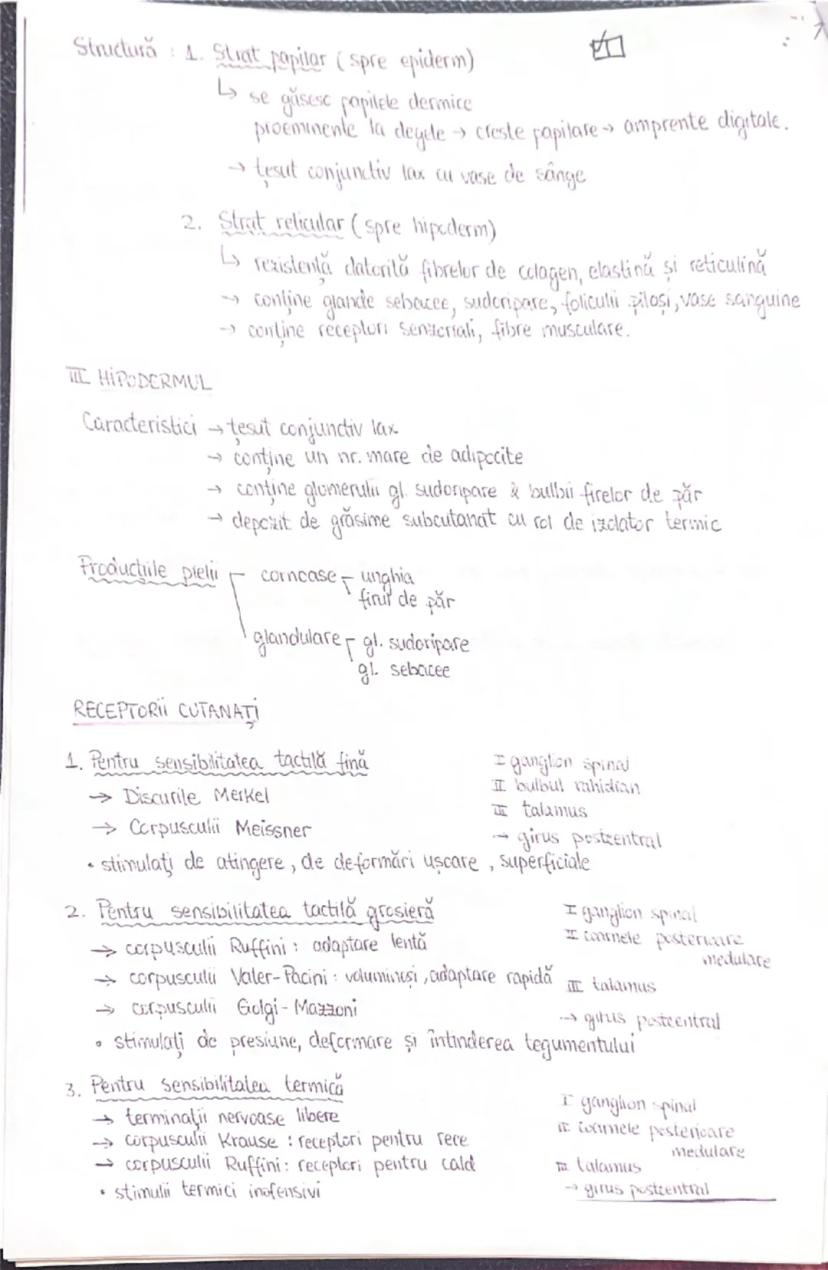 Structură : 1. Strat papilar (spre epiderm)
↳ se găsesc papilele dermice
proeminente la degete → creste papilare → amprente digitale.
→ țesut conjunctiv lax cu vase de sânge
2. Strat reticular (spre hipoderm)
↳ rezistență datorită fibrelor de colagen, elastină și reticulină
→ conține glande sebacee, sudoripare, foliculii piloși, vase sanguine
→ conține receptori senzoriali, fibre musculare.
III HIPODERMUL
Caracteristici → țesut conjunctiv lax
→ conține un nr. mare de adipocite
→ conține glomerulii gl. sudoripare & bulbii firelor de păr
→ depozit de grăsime subcutanat cu rol de izolator termic
Producțiile pielii cornoase unghia
firul de păr
glandulare gl. sudoripare
gl. sebacee
RECEPTORII CUTANAȚI
1. Pentru sensibilitatea tactilă fină I ganglion spinal
→ Discurile Merkel II bulbul rahidian
III talamus
→ Corpusculii Meissner → girus postcentral
• stimulați de atingere, de deformări ușoare, superficiale
2. Pentru sensibilitatea tactilă grosieră I ganglion spinal
→ corpusculii Ruffini : adaptare lentă II coarnele posterioare
medulare
→ corpusculii Vater-Pacini : voluminoși, adaptare rapidă III talamus
→ corpusculii Golgi-Mazzoni → girus postcentral
• stimulați de presiune, deformare și întinderea tegumentului
3. Pentru sensibilitatea termică I ganglion spinal
→ terminații nervoase libere II coarnele posterioare
→ corpusculii Krause : receptori pentru rece medulare
→ corpusculii Ruffini : receptori pentru cald III talamus
• stimulii termici inofensivi → girus postcentral